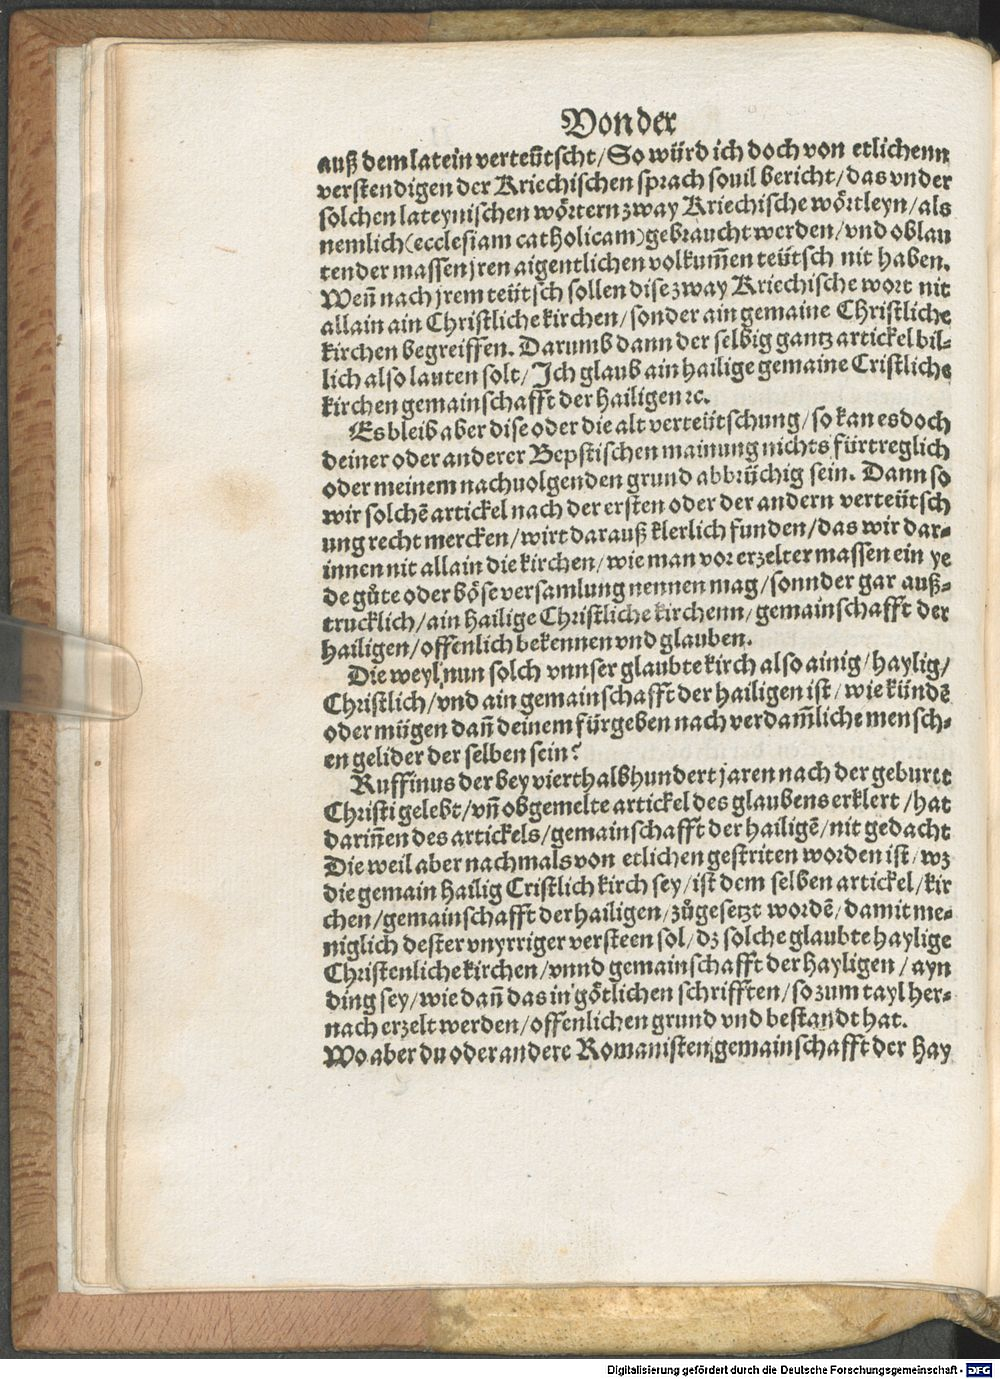 Von der
auß dem latein verteütscht/ So würd ich doch von etlichenn
verstendigen der Kriechischen sprach souil bericht/ das vnder
solchen lateynischen wörtern zway Kriechische wörtleyn/ als
nemlich (ecclesiam catholicam) gebraucht werden/ vnd ob lau
ten der massen jren aigentlichen volkum̃en teütsch nit haben.
Weñ nach jrem teütsch sollen dise zway Kriechische wort nit
allain ain Christliche kirchen/ sonder ain gemaine Christliche
kirchen begreiffen. Darumb dann der selbig gantz artickel bil-
lich also lauten solt/ Jch glaub ain hailige gemaine Cristliche
kirchen gemainschafft der hailigen ꝛc.
Es bleib aber dise oder die alt verteütschung/ so kan es doch
deiner oder anderer Bepstischen mainung nichts fürtreglich
oder meinem nachuolgenden grund abbrüchig sein. Dann so
wir solchẽ artickel nach der ersten oder der andern verteütsch
ung recht mercken/ wirt darauß klerlich funden/ das wir dar-
innen nit allain die kirchen/ wie man vor erzelter massen ein ye
de gůte oder böse versamlung nennen mag/ sonnder gar auß-
trucklich/ ain hailige Christliche kirchenn/ gemainschafft der
hailigen/ offenlich bekennen vnd glauben.
Die weyl nun solch vnnser glaubte kirch also ainig/ haylig/
Christlich/ vnd ain gemainschafft der hailigen ist/ wie kündẽ
oder mügen dañ deinem fürgeben nach verdam̃liche mensch-
en gelider der selben sein?
Ruffinus der bey vierthalbhundert jaren nach der geburtt
Christi gelebt/ vñ obgemelte artickel des glaubens erklert/ hat
dariñen des artickels/ gemainschafft der hailigẽ/ nit gedacht
Die weil aber nachmals von etlichen gestriten worden ist/ wz
die gemain hailig Cristlich kirch sey/ ist dem selben artickel/ kir
chen/ gemainschafft der hailigen/ zůgesetzt wordẽ/ damit me-
niglich dester vnyrriger versteen sol/ dz solche glaubte haylige
Christenliche kirchen/ vnnd gemainschafft der hayligen/ ayn
ding sey/ wie dañ das in götlichen schrifften/ so zum tayl her-
nach erzelt werden/ offenlichen grund vnd bestandt hat.
Wo aber du oder andere Romanisten/ gemainschafft der hay
Digitalisierung gefördert durch die Deutsche Forschungsgemeinschaft - DFG